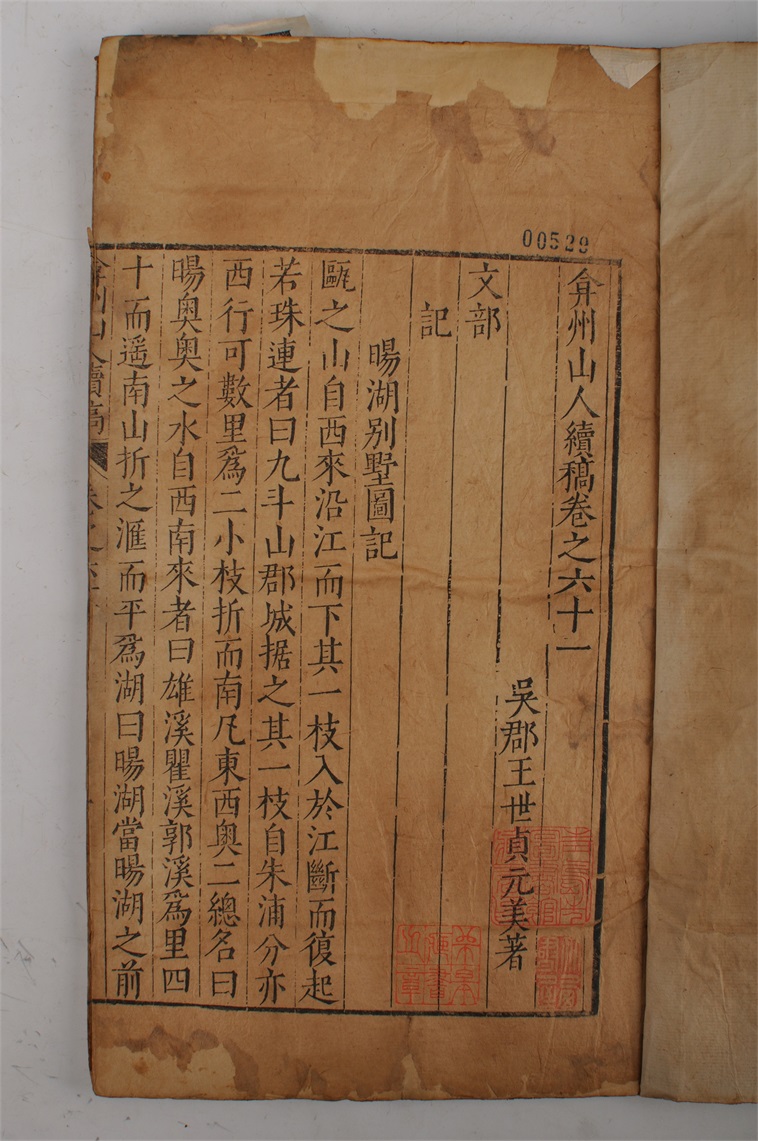 00529
弇州山人續稿卷之六十一
吳郡王世貞元美著
文部
記
暘湖別墅圖記
甌之山自西來沿江而下其一枝入於江斷而復起
若珠連者曰九斗山郡城据之其一枝自朱浦分亦
西行可數里爲二小枝折而南凡東西奥二總名曰
暘奥奥之水自西南來者曰雄溪瞿溪郭溪爲里四
十而遥南山折之滙而平爲湖曰暘湖當暘湖之前
弇州山人續稿 卷之六十